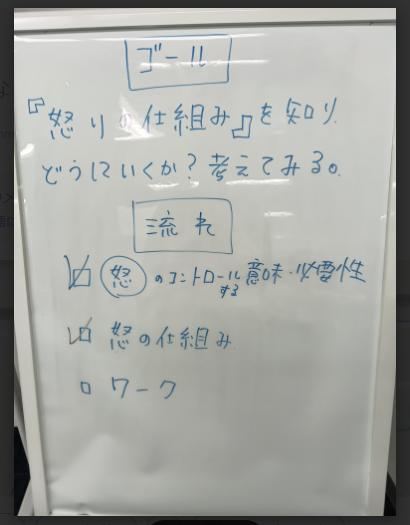 ゴール
『怒りの仕組み』を知り、
どうにいくか?考えてみる。
流れ
☑ 怒のコントロールする意味・必要性
☑ 怒の仕組み
□ ワーク